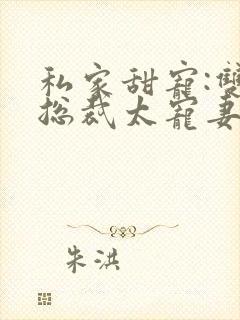 私家甜寵:雙
总裁太寵妻
朱洪